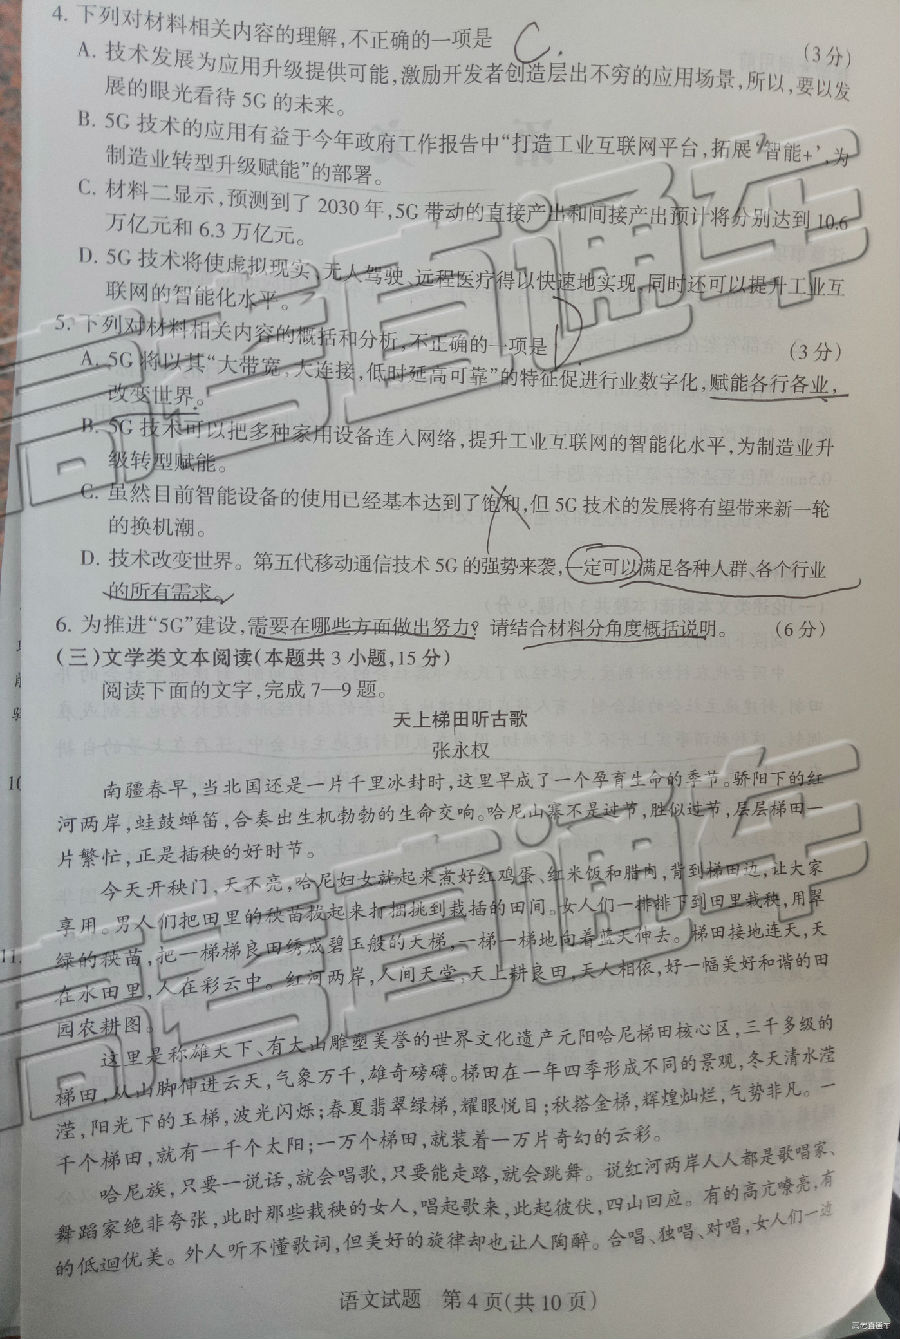 4. 下列对材料相关内容的理解,不正确的一项是 C. (3分)
A. 技术发展为应用升级提供可能,激励开发者创造层出不穷的应用场景,所以,要以发
展的眼光看待 5G 的未来。
B. 5G 技术的应用有益于今年政府工作报告中“打造工业互联网平台,拓展‘智能+’,为
制造业转型升级赋能”的部署。
C. 材料二显示,预测到了 2030 年,5G 带动的直接产出和间接产出预计将分别达到 10.6
万亿元和 6.3 万亿元。
D. 5G 技术将使虚拟现实、无人驾驶、远程医疗得以快速地实现,同时还可以提升工业互
联网的智能化水平。
5. 下列对材料相关内容的概括和分析,不正确的一项是 D (3分)
A. 5G 将以其“大带宽,大连接,低时延高可靠”的特征促进行业数字化,赋能各行各业,
改变世界。
B. 5G 技术可以把多种家用设备连入网络,提升工业互联网的智能化水平,为制造业升
级转型赋能。
C. 虽然目前智能设备的使用已经基本达到了饱和,但 5G 技术的发展将有望带来新一轮
的换机潮。
D. 技术改变世界。第五代移动通信技术 5G 的强势来袭,一定可以满足各种人群、各个行业
的所有需求。
6. 为推进“5G”建设,需要在哪些方面做出努力?请结合材料分角度概括说明。 (6分)
(三)文学类文本阅读(本题共 3 小题,15 分)
阅读下面的文字,完成 7—9 题。
天上梯田听古歌
张永权
南疆春早,当北国还是一片千里冰封时,这里早成了一个孕育生命的季节。骄阳下的红
河两岸,蛙鼓蝉笛,合奏出生机勃勃的生命交响。哈尼山寨不是过节,胜似过节,层层梯田一
片繁忙,正是插秧的好时节。
今天开秧门,天不亮,哈尼妇女就起来煮好红鸡蛋、红米饭和腊肉,背到梯田边,让大家
享用。男人们把田里的秧苗拔起来打捆挑到栽插的田间。女人们一排排下到田里栽秧,用翠
绿的秧苗,把一梯梯良田绣成碧玉般的天梯,一梯一梯地向着蓝天伸去。梯田接地连天,天
在水田里,人在彩云中。红河两岸,人间天堂,天上耕良田,天人相依,好一幅美好和谐的田
园农耕图。
这里是称雄天下、有大山雕塑美誉的世界文化遗产元阳哈尼梯田核心区,三千多级的
梯田,从山脚伸进云天,气象万千,雄奇磅礴。梯田在一年四季形成不同的景观,冬天清水滢
滢,阳光下的玉梯,波光闪烁;春夏翡翠绿梯,耀眼悦目;秋搭金梯,辉煌灿烂,气势非凡。一
千个梯田,就有一千个太阳;一万个梯田,就装着一万片奇幻的云彩。
哈尼族,只要一说话,就会唱歌,只要能走路,就会跳舞。说红河两岸人人都是歌唱家、
舞蹈家绝非夸张,此时那些栽秧的女人,唱起歌来,此起彼伏,四山回应。有的高亢嘹亮,有
的低迴优美。外人听不懂歌词,但美好的旋律却也让人陶醉。合唱、独唱、对唱,女人们一边
语文试题 第 4 页(共 10 页)
高考直通车
高考直通车
10
11.
高考直通车